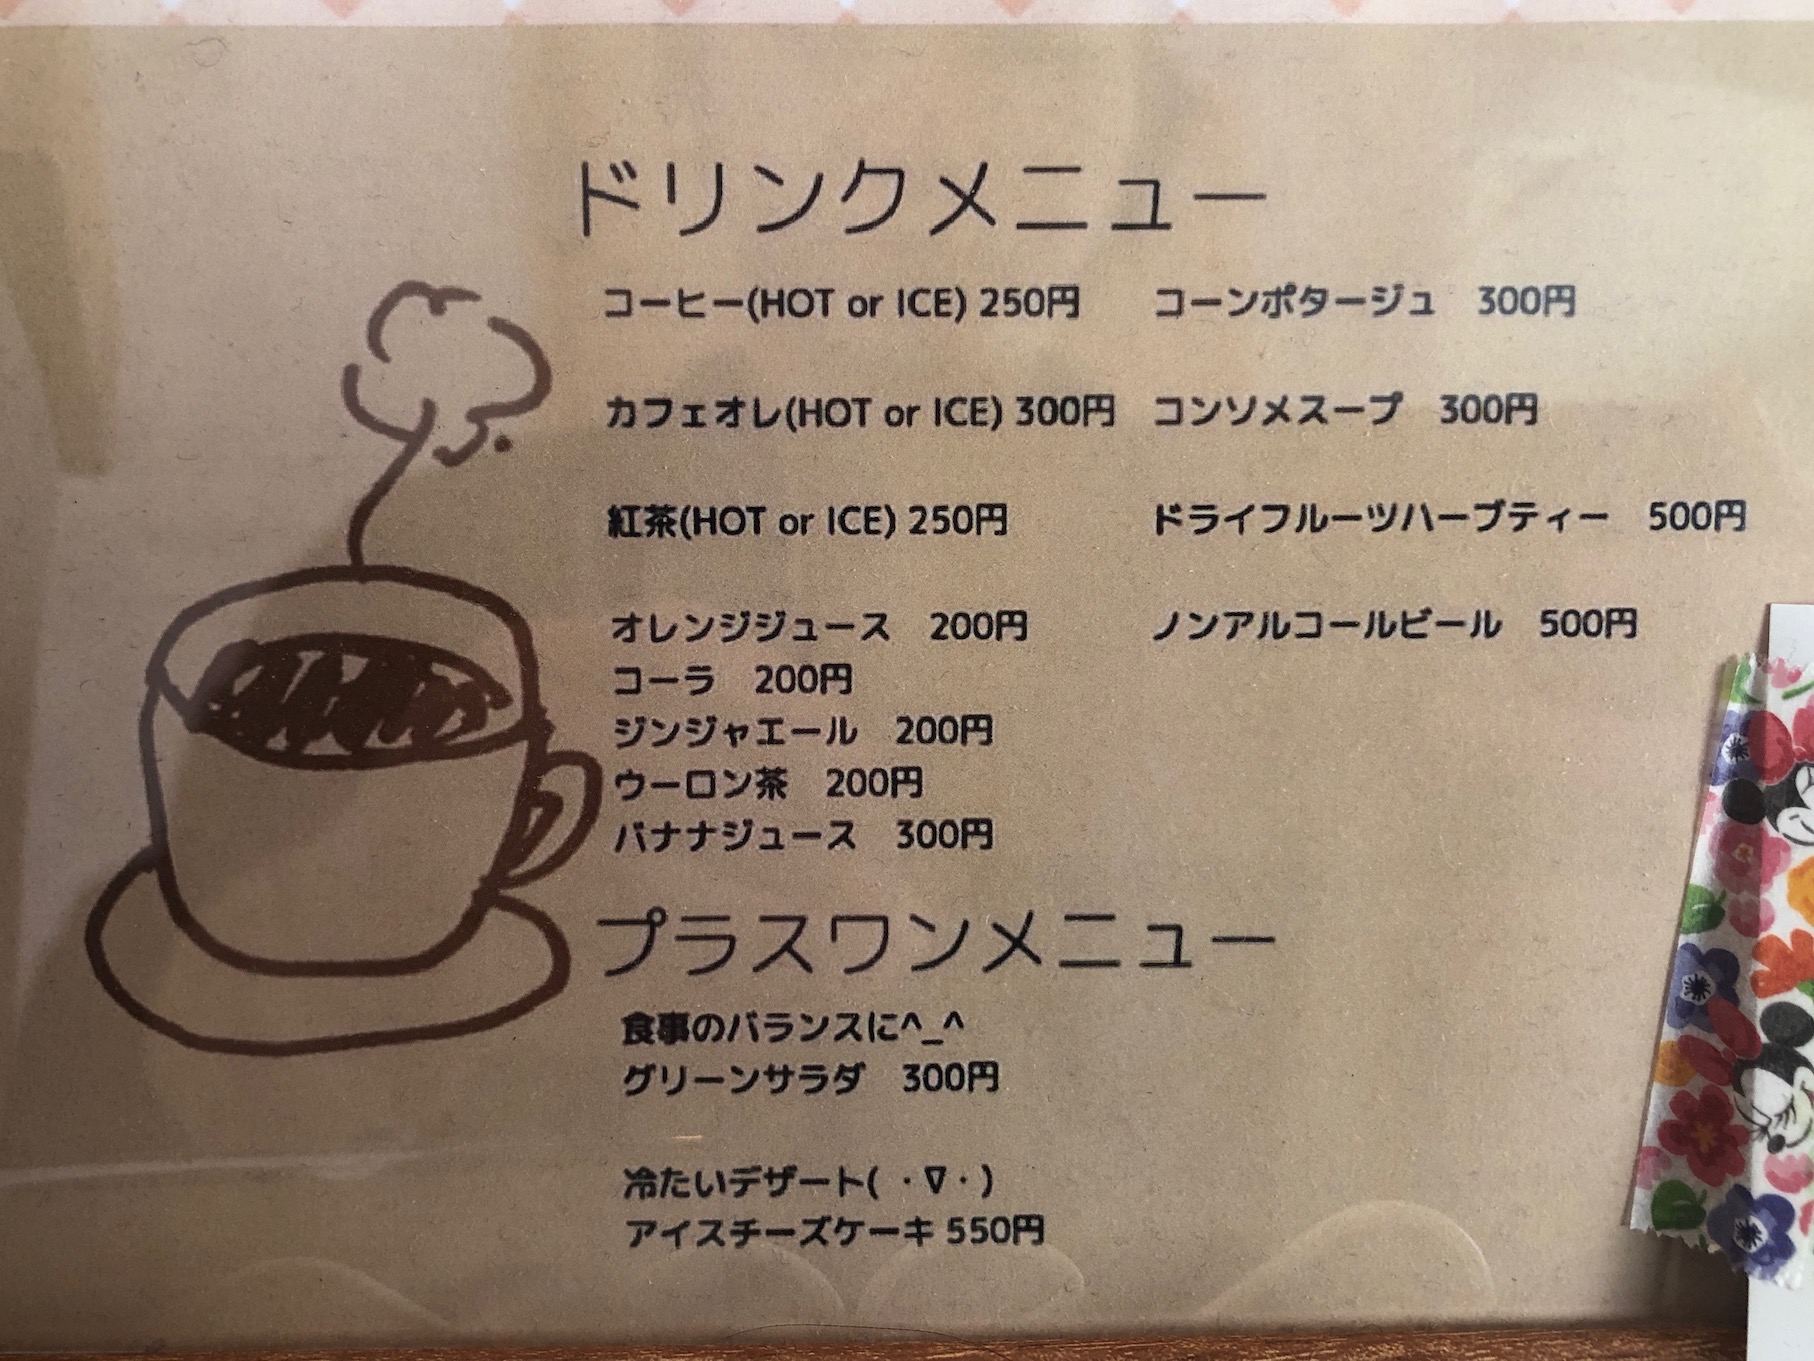 ドリンクメニュー
コーヒー(HOT or ICE) 250円
カフェオレ(HOT or ICE) 300円
紅茶(HOT or ICE) 250円
オレンジジュース　200円
コーラ　200円
ジンジャエール　200円
ウーロン茶　200円
バナナジュース　300円
コーンポタージュ　300円
コンソメスープ　300円
ドライフルーツハーブティー　500円
ノンアルコールビール　500円
プラスワンメニュー
食事のバランスに^_^
グリーンサラダ　300円
冷たいデザート( ・∇・)
アイスチーズケーキ 550円